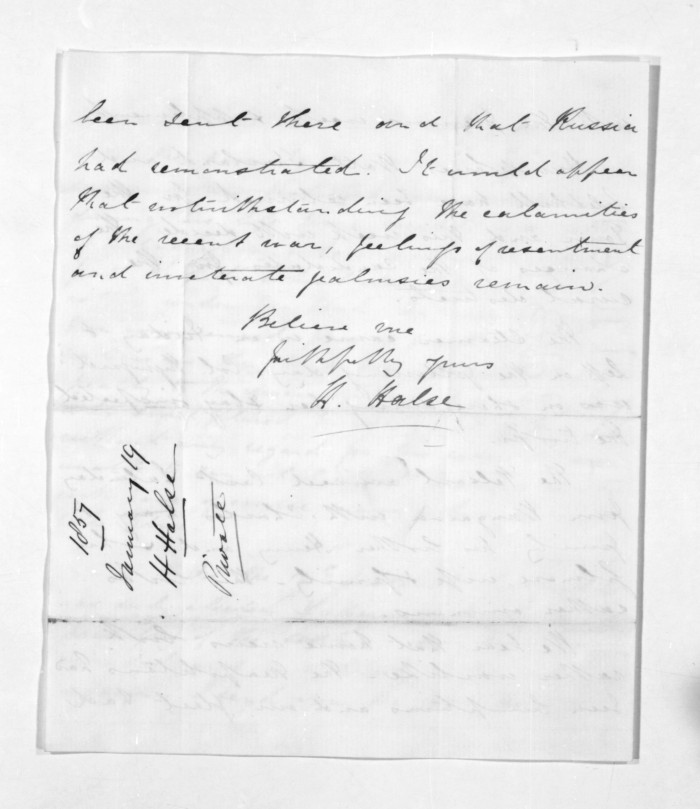 been sent there and that Russia
had remonstrated. It would appear
that notwithstanding the calamities
of the recent war, feelings of resentment
and inveterate jealousies remain.
Believe me
faithfully yours
H. Halse
1857
January 19
H Halse
Private